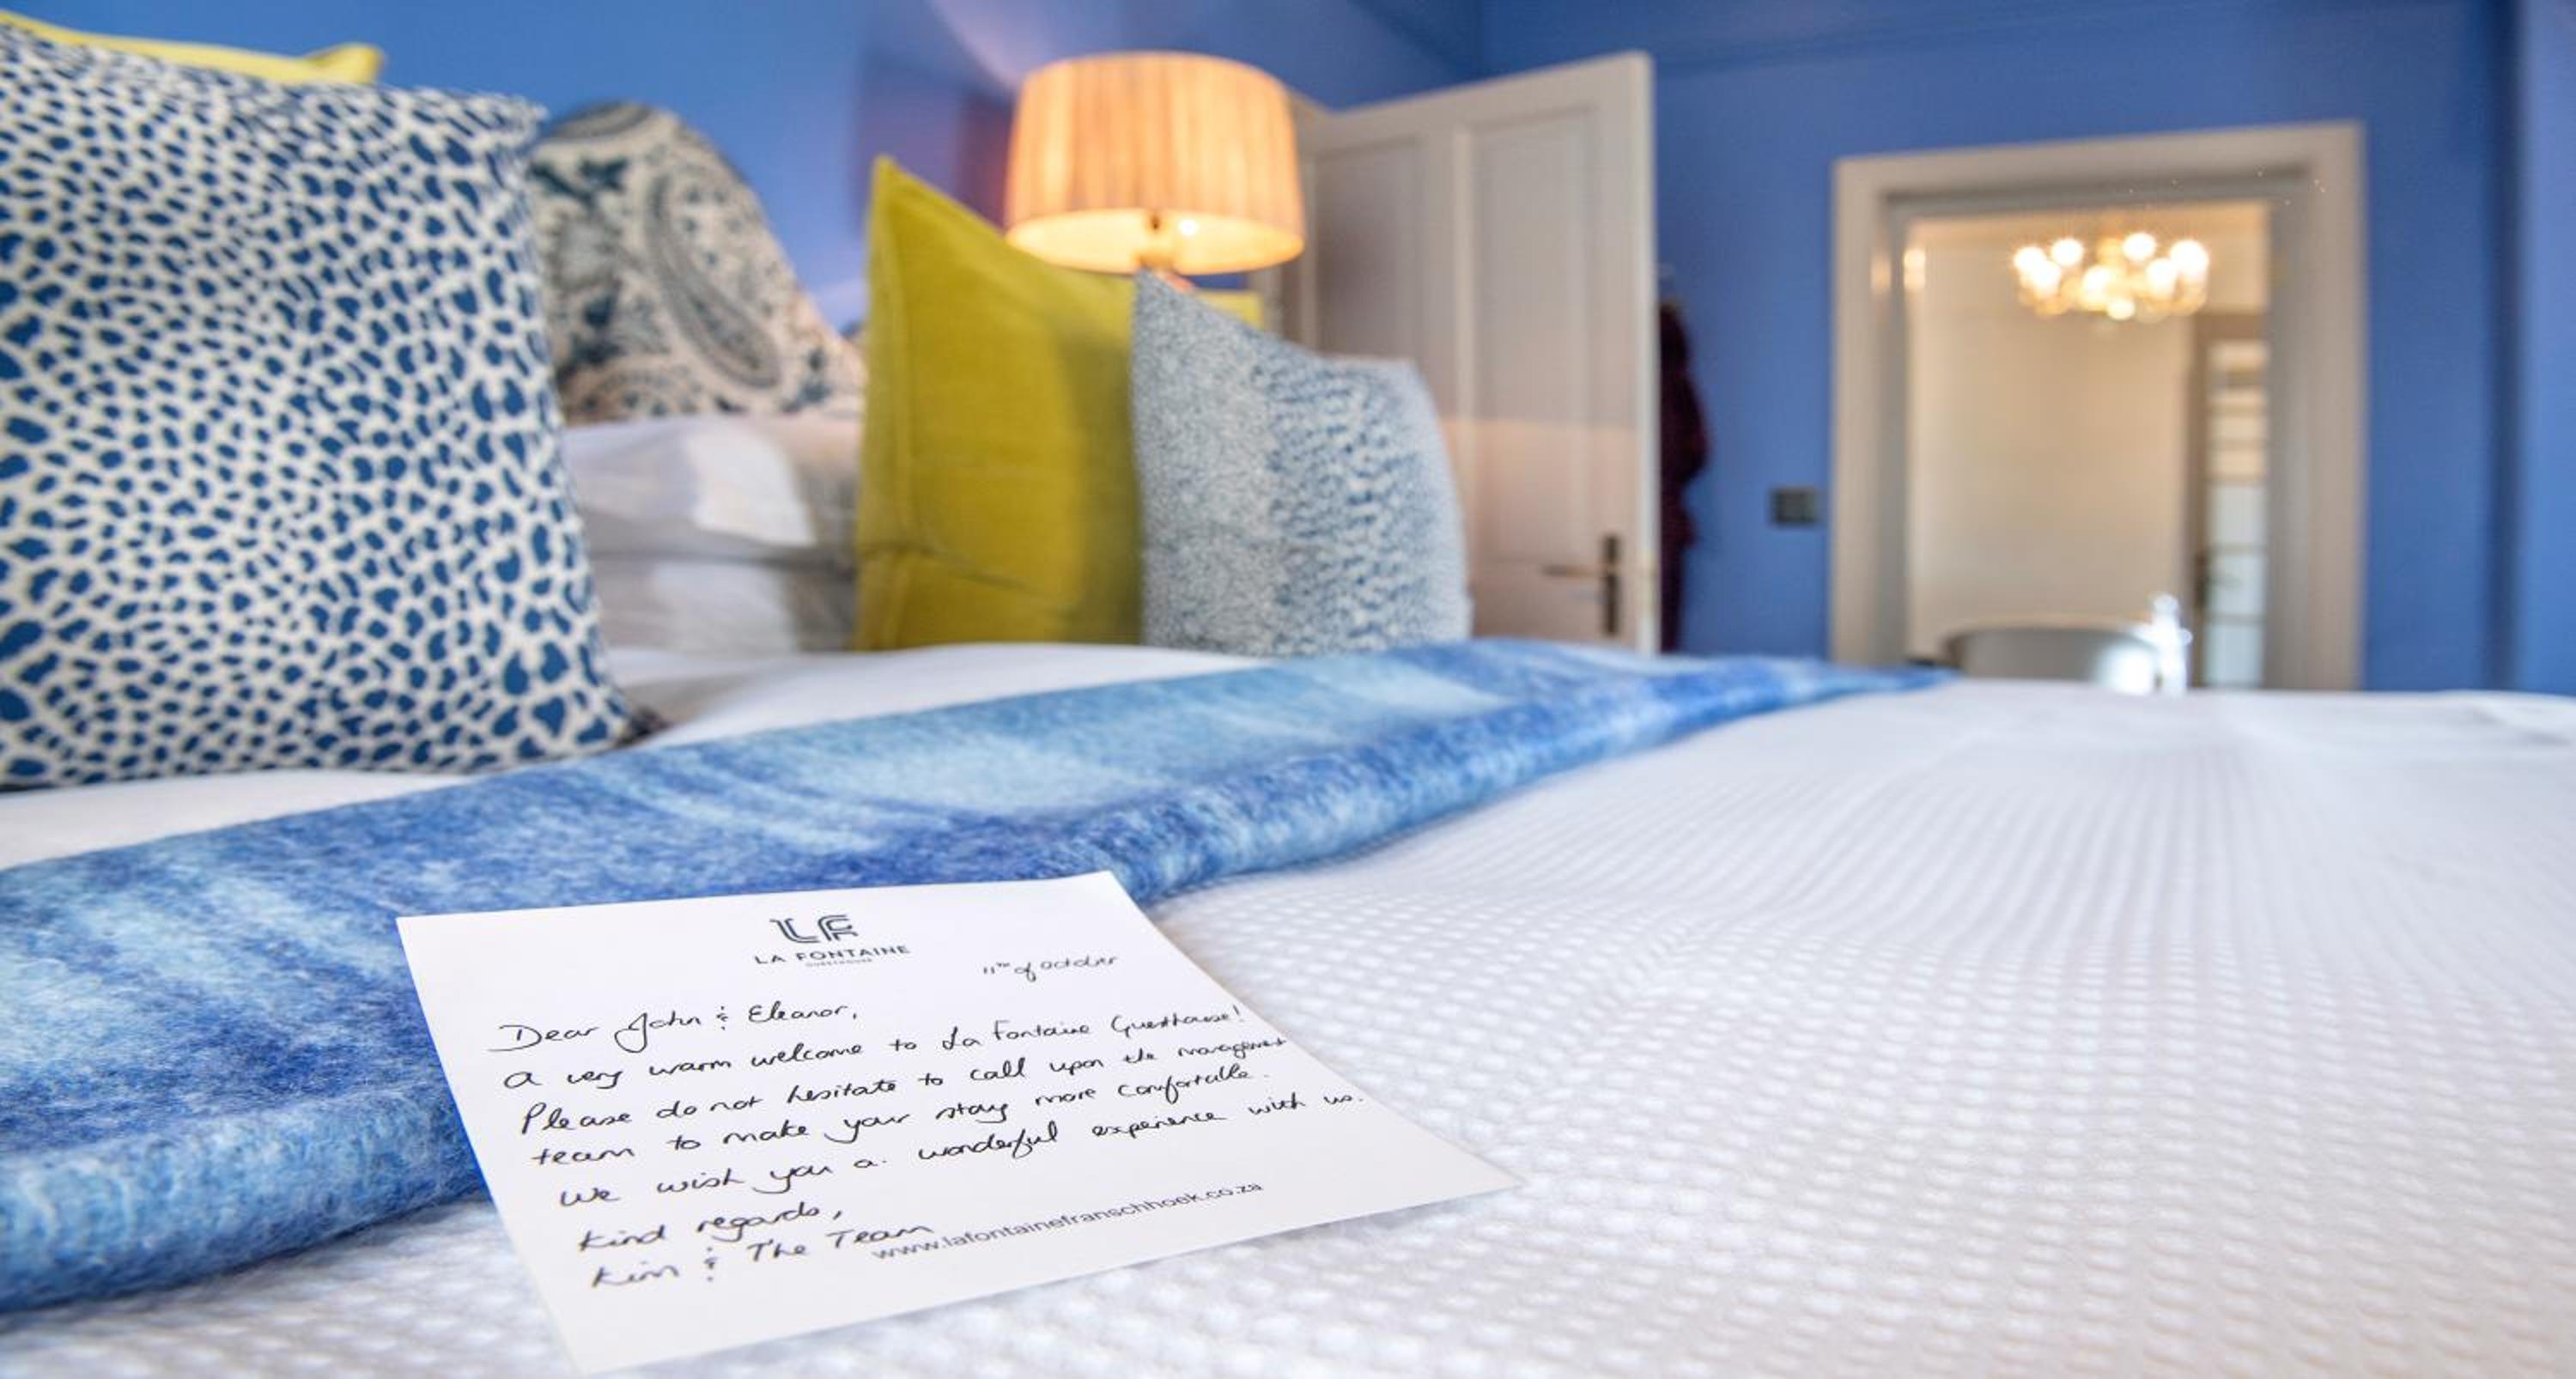 LF
LA FONTAINE
GUESTHOUSE
11TH of October
Dear John & Eleanor,
A very warm welcome to La Fontaine Guesthouse!
Please do not hesitate to call upon the management
team to make your stay more comfortable.
We wish you a wonderful experience with us.
Kind regards,
Kim & The Team
www.lafontainefranschhoek.co.za